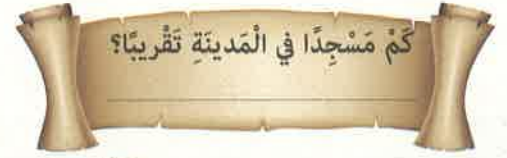 كَمْ مَسْجِدًا فِي الْمَدينَةِ تَقْريبًا؟